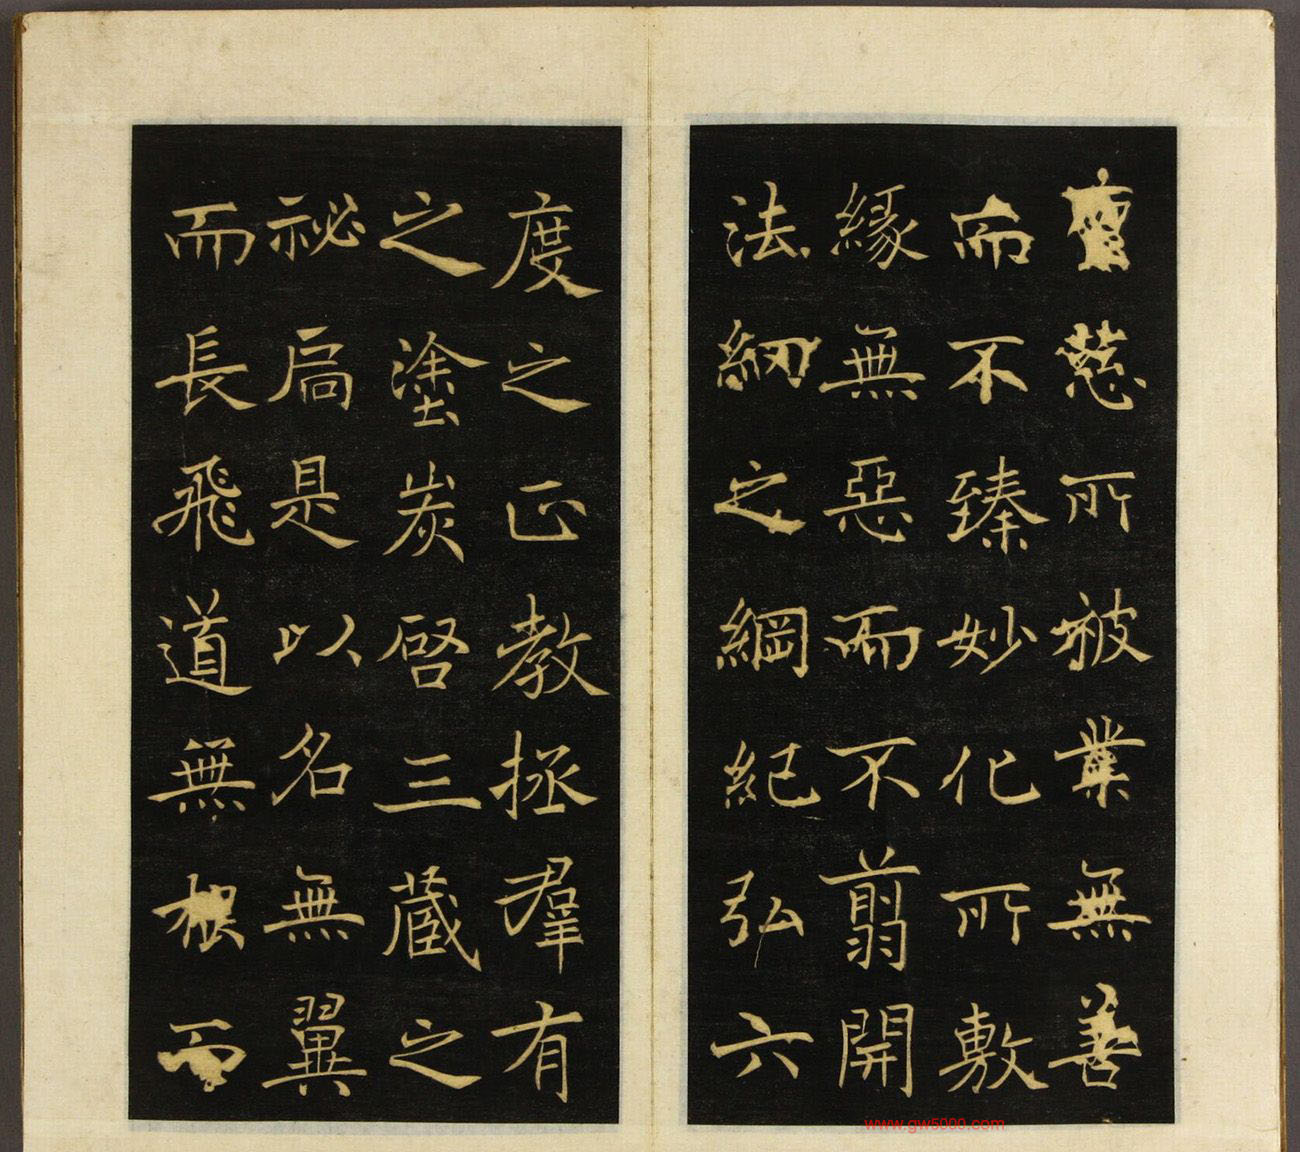 慈所被業無善
而不臻妙化所敷
緣無惡而不翦開
法網之綱紀弘六
度之正教拯羣有
之塗炭啓三藏之
祕扃是以名無翼
而長飛道無根而
www.gw5000.com